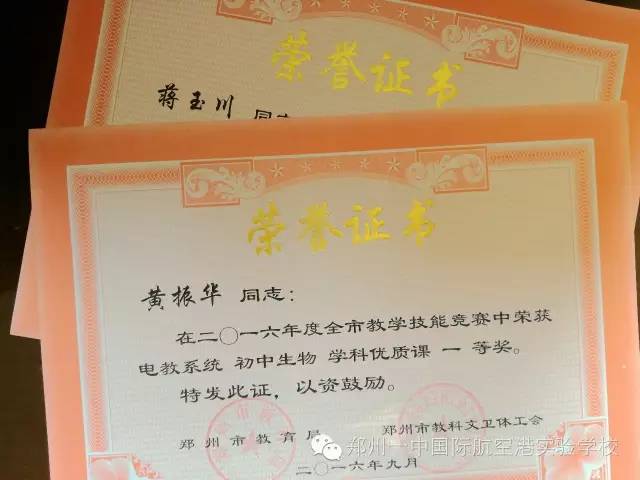 荣誉证书
蒋玉川 同志
荣誉证书
黄振华 同志：
在二〇一六年度全市教学技能竞赛中荣获
电教系统 初中生物 学科优质课 一 等奖。
特发此证，以资鼓励。
郑州市教育局 郑州市教科文卫体工会
二〇一六年九月
郑州一中国际航空港实验学校